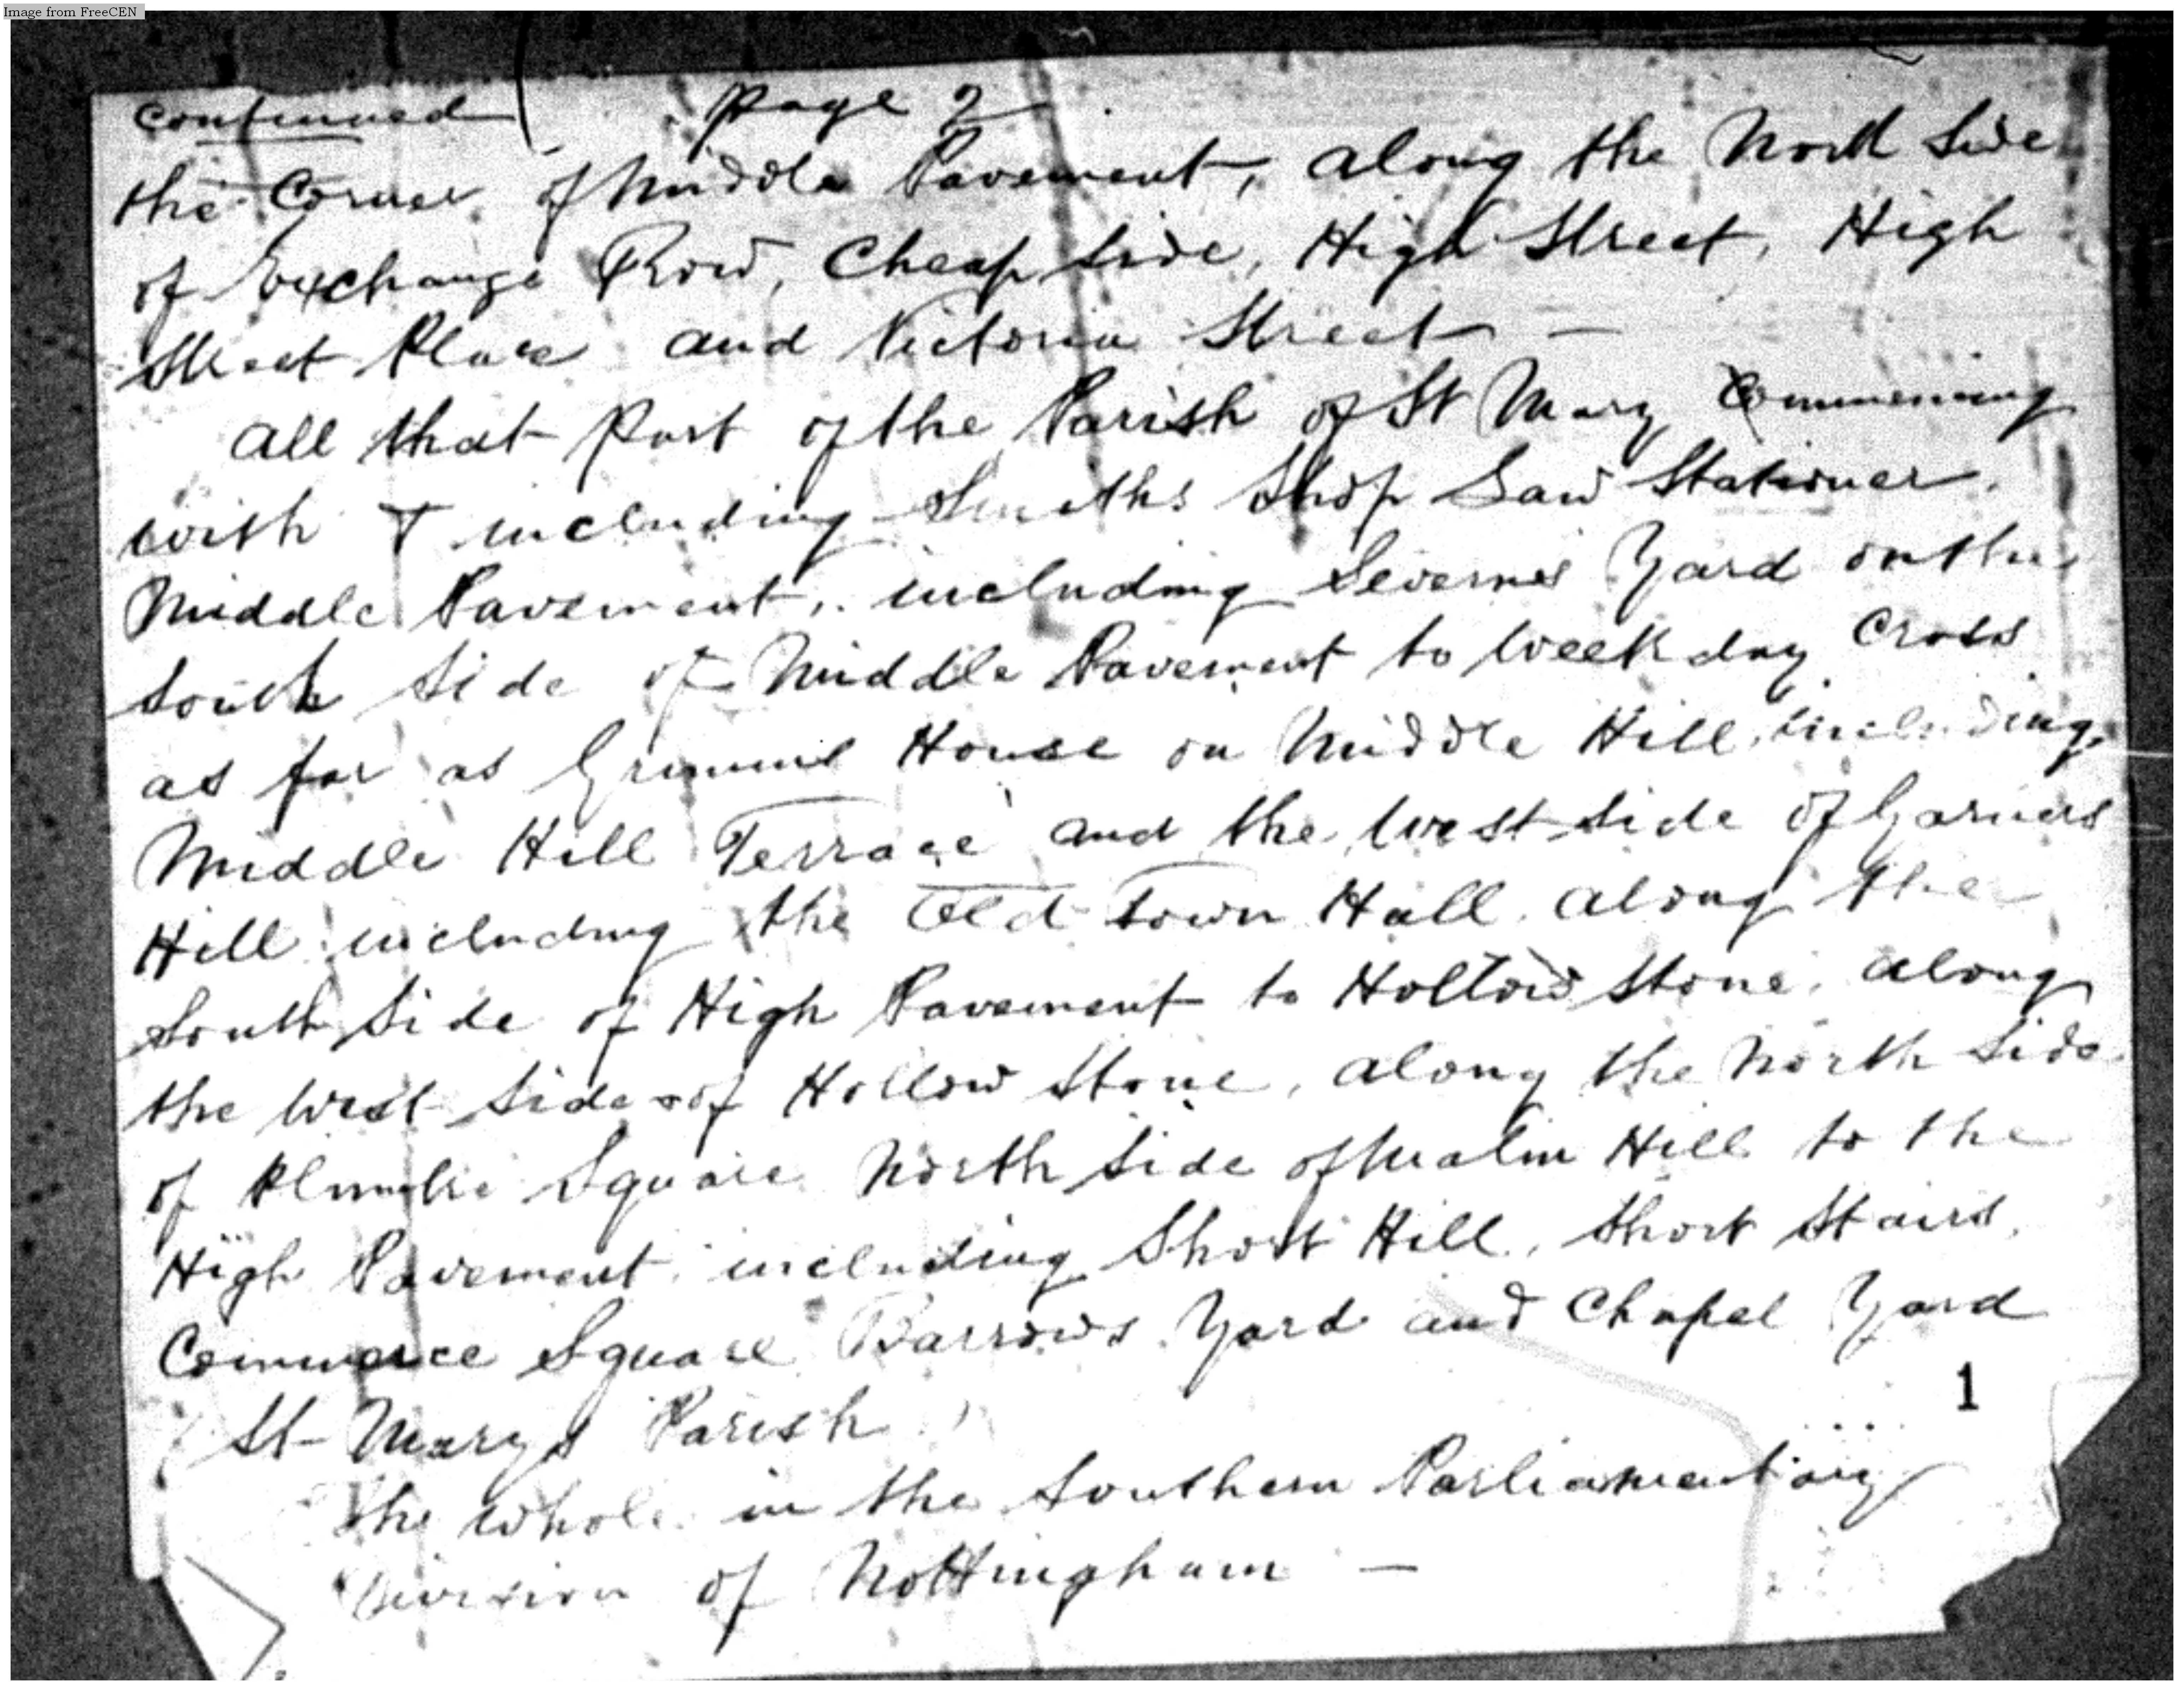 Image from FreeCEN
Continued Page 2
the Corner of Middle Pavement, along the North Side
of Exchange Row, Cheapside, High Street, High
Street Place and Victoria Street —
All that part of the Parish of St Mary Commencing
with & including Smiths Shop Law Stationer
Middle Pavement, including Severns Yard on the
South Side of Middle Pavement to Week day Cross
as far as House on Middle Hill, including
Middle Hill Terrace and the West Side of Garners
Hill including the Old Town Hall along the
South Side of High Pavement to Hollow Stone, along
the West Side of Hollow Stone, along the North Side
of Plumbre Square North Side of Malin Hill to the
High Pavement including Short Hill, Short Stairs,
Commerce Square Barrows Yard and Chapel Yard
1
St Marys Parish
The whole in the Southern Parliamentary
Division of Nottingham —